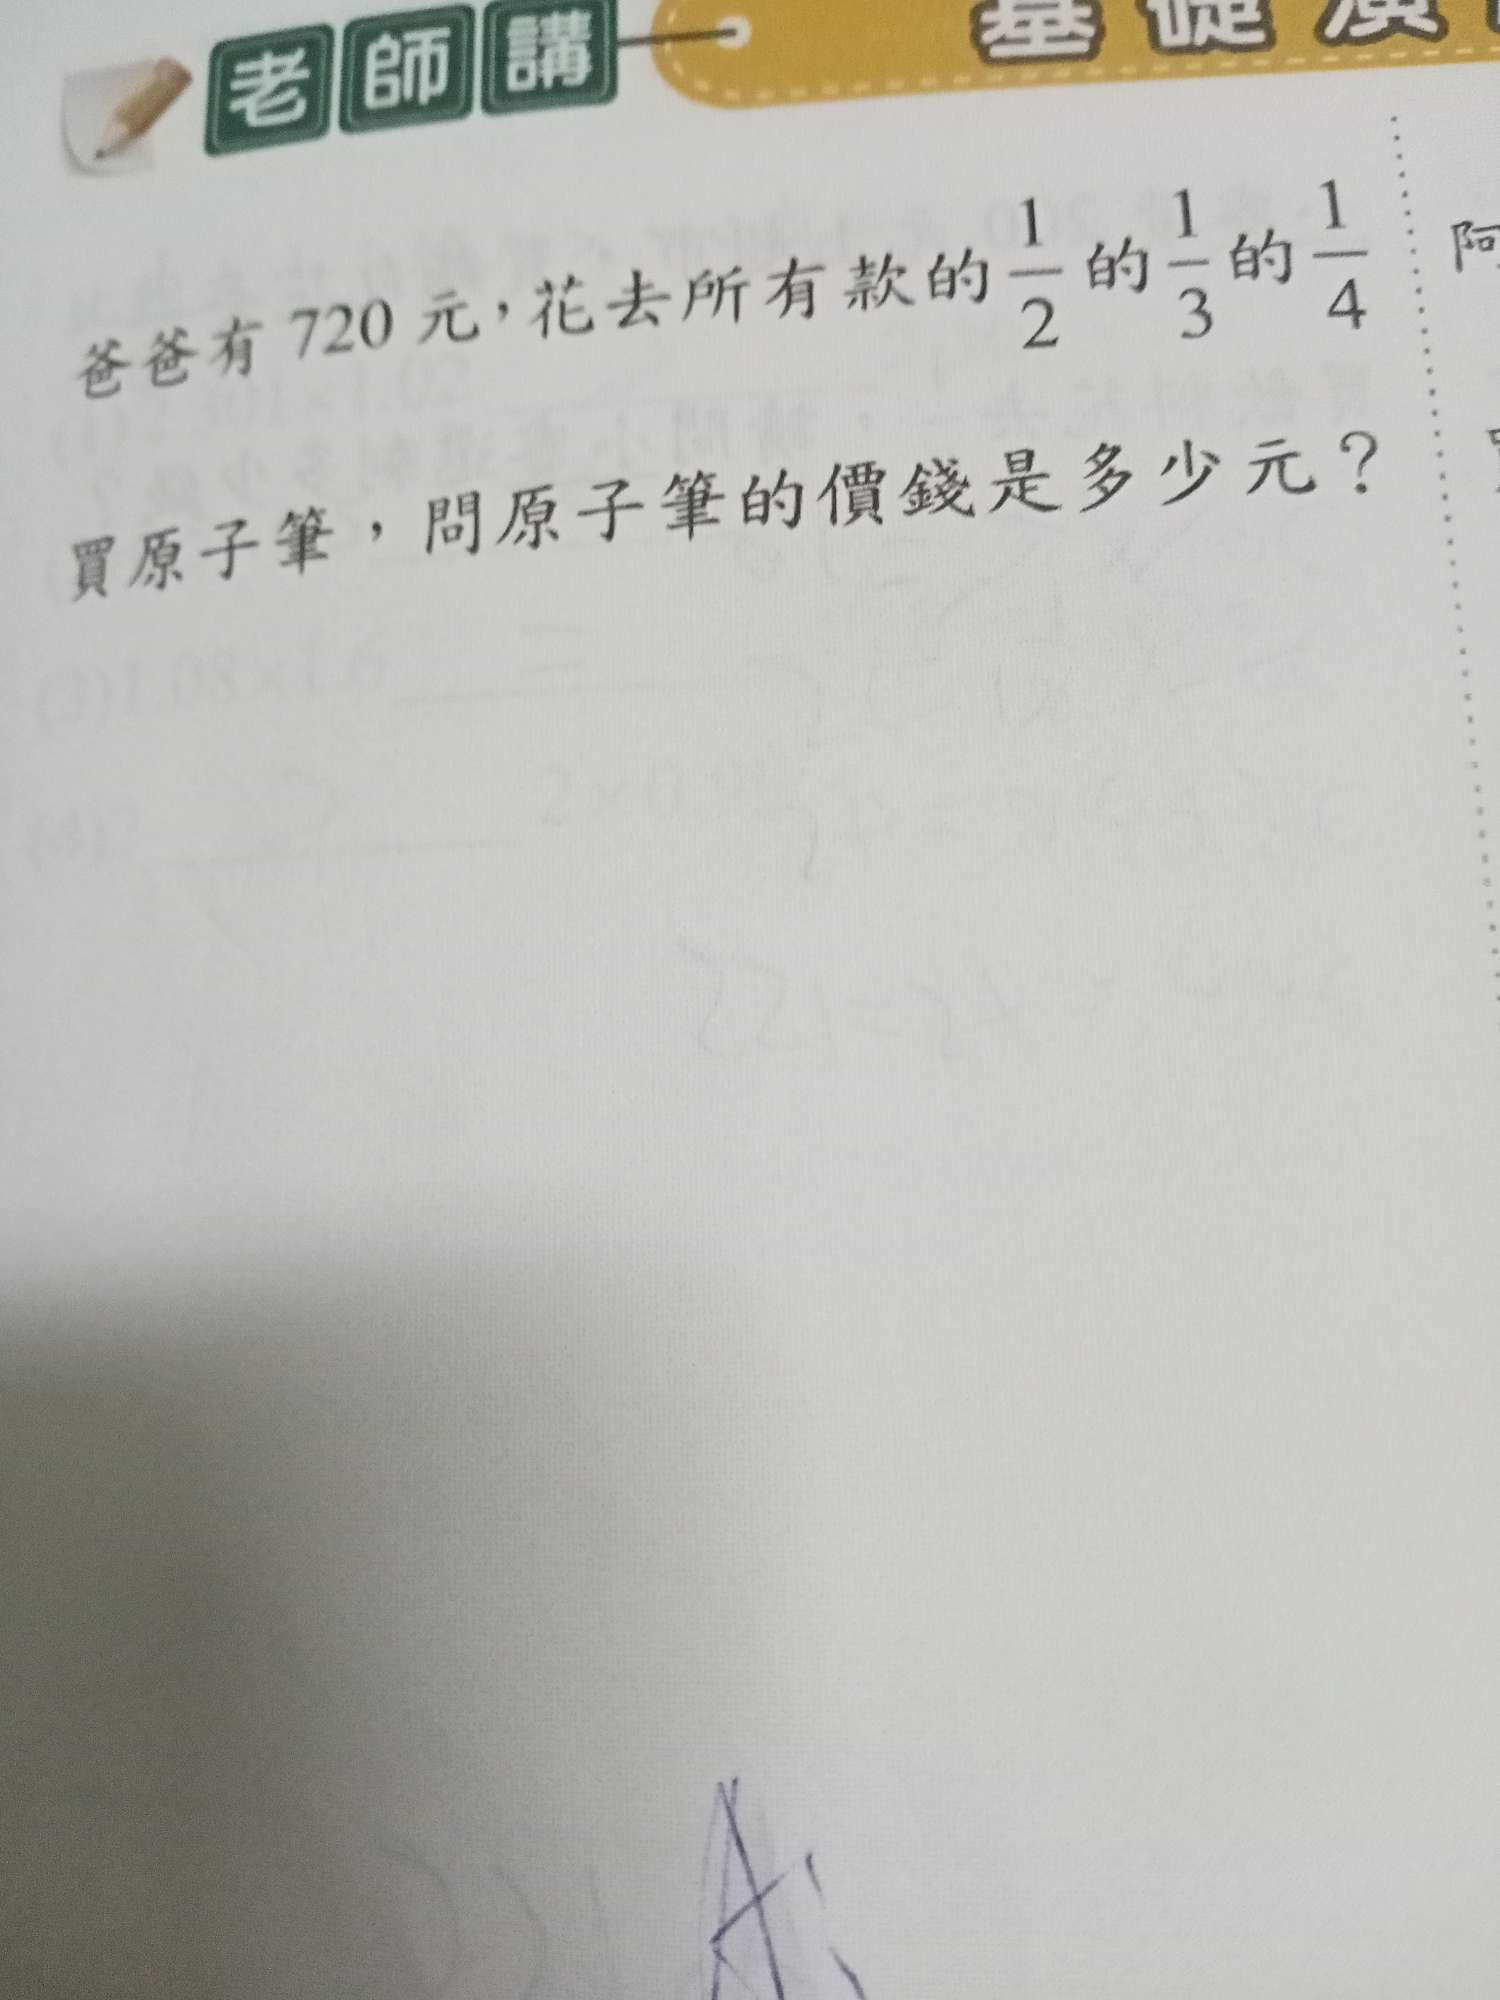 老師講
基礎演
爸爸有 720 元，花去所有款的 1/2 的 1/3 的 1/4
阿
買原子筆，問原子筆的價錢是多少元？
A: